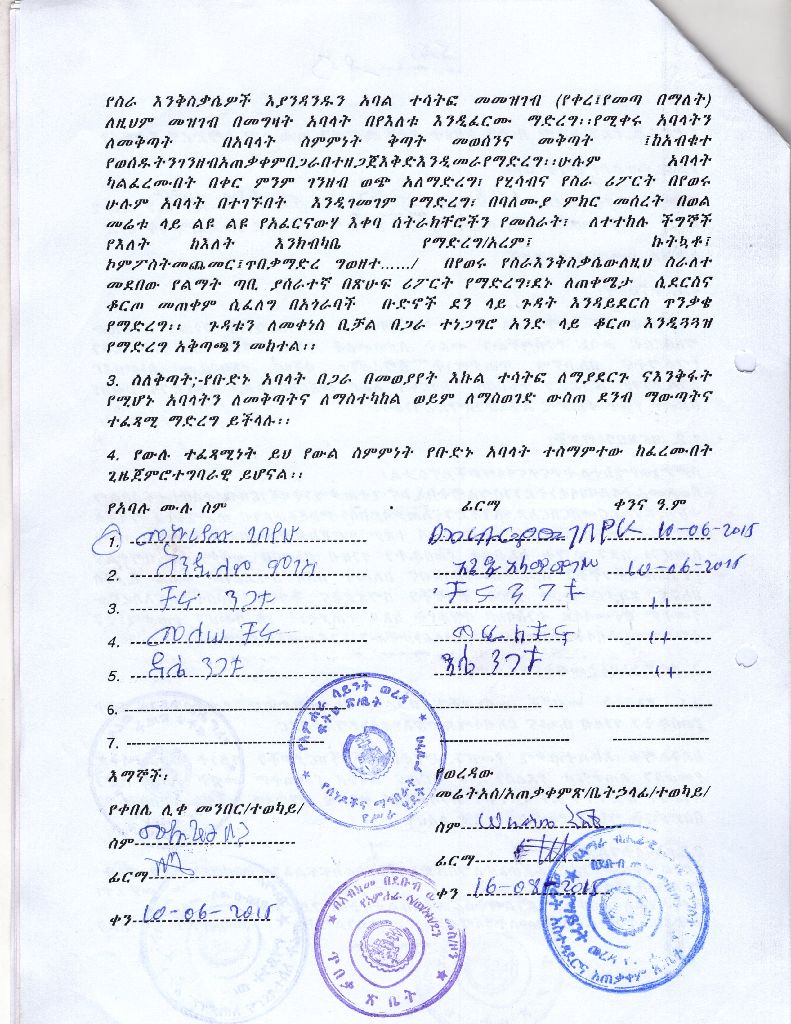 የስራ እንቅስቃሴዎች እያንዳንዱን አባል ተሳትፎ መመዝገብ (የቀረ፤የመጣ በማለት)
ለዚህም መዝገብ በመግዛት አባላት በየእለቱ እንዲፈርሙ ማድረግ፡፡የሚቀሩ አባላትን
ለመቅጣት በአባላት ስምምነት ቅጣት መወሰንና መቅጣት ፤ከአብቁተ
የወሰዱትንገንዘብአጠቃቀምበጋራበተዘጋጀእቅድእንዲመራየማድረግ፡፡ሁሉም አባላት
ካልፈረሙበት በቀር ምንም ገንዘብ ወጭ አለማድረግ፣ የሂሳብና የስራ ሪፖርት በየወሩ
ሁሉም አባላት በተገኙበት እንዲገመገም የማድረግ፣ በባለሙያ ምክር መሰረት በወል
መሬቱ ላይ ልዩ ልዩ የአፈርናውሃ እቀባ ስትራክቸሮችን የመስራት፣ ለተተከሉ ችግኞች
የእለት ከእለት እንክብካቤ የማድረግ/አረም፤ ኩትኳቶ፤
ኮምፖስትመጨመር፤ጥበቃማድረ ግወዘተ....../ በየወሩ የስራእንቅስቃሴውለዚህ ስራለተ
መደበው የልማት ጣቢ ያሰራተኛ በጽሁፍ ሪፖርት የማድረግ፤ደኑ ለጠቀሜታ ሲደርስና
ቆርጦ መጠቀም ሲፈለግ በአጎራባች ቡድኖች ደን ላይ ጉዳት እንዳይደርስ ጥንቃቄ
የማድረግ፡፡ ጉዳቱን ለመቀነስ ቢቻል በጋራ ተነጋግሮ አንድ ላይ ቆርጦ እንዲጓጓዝ
የማድረግ አቅጣጫን መከተል፡፡
3. ስለቅጣት;-የቡድኑ አባላት በጋራ በመወያየት እኩል ተሳትፎ ለማያደርጉ ናእንቅፋት
የሚሆኑ አባላትን ለመቅጣትና ለማስተካከል ወይም ለማስወገድ ውስጠ ደንብ ማውጣትና
ተፈጻሚ ማድረግ ይችላሉ፡፡
4. የውሉ ተፈጻሚነት ይህ የውል ስምምነት የቡድኑ አባላት ተስማምተው ከፈረሙበት
ጊዜጀምሮተግባራዊ ይሆናል፡፡
የአባሉ ሙሉ ስም ፊርማ ቀንና ዓ.ም
1. 10-06-2015
2. 10-06-2015
3. ቸሩ ንጋቱ ቸሩ ንጋቱ ''
4. ''
5. ንጋቱ ንጋቱ ''
6.
7.
እማኞች፡ የወረዳው
የቀበሌ ሊቀ መንበር/ተወካይ/ መሬትአስ/አጠቃቀምጽ/ቤትኃላፊ/ተወካይ/
ስም ስም
ፊርማ ፊርማ
ቀን 10-06-2015 ቀን 16-08-2015